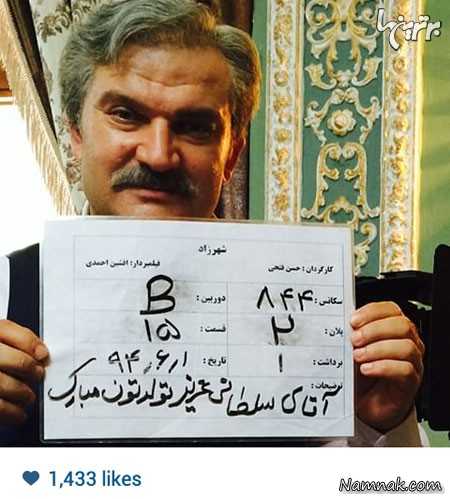 برترینها
شهرزاد
کارگردان: حسن فتحی فیلمبردار: افشین احمدی
سکانس: ۸۴۴ دوربین: B
پلان: ۲ قسمت: ۱۵
برداشت: ۱ تاریخ: ۹۴،۶،۱
توضیحات:
آقای سلطانی عزیز تولدتون مبارک
1,433 likes
Namnak.com